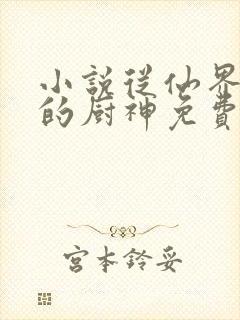 小説從仙界
的厨神免費
宮本鈴妥